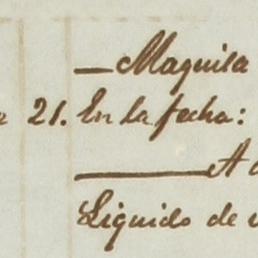 —Maquila
21. En la fecha:
—A
Liquido de